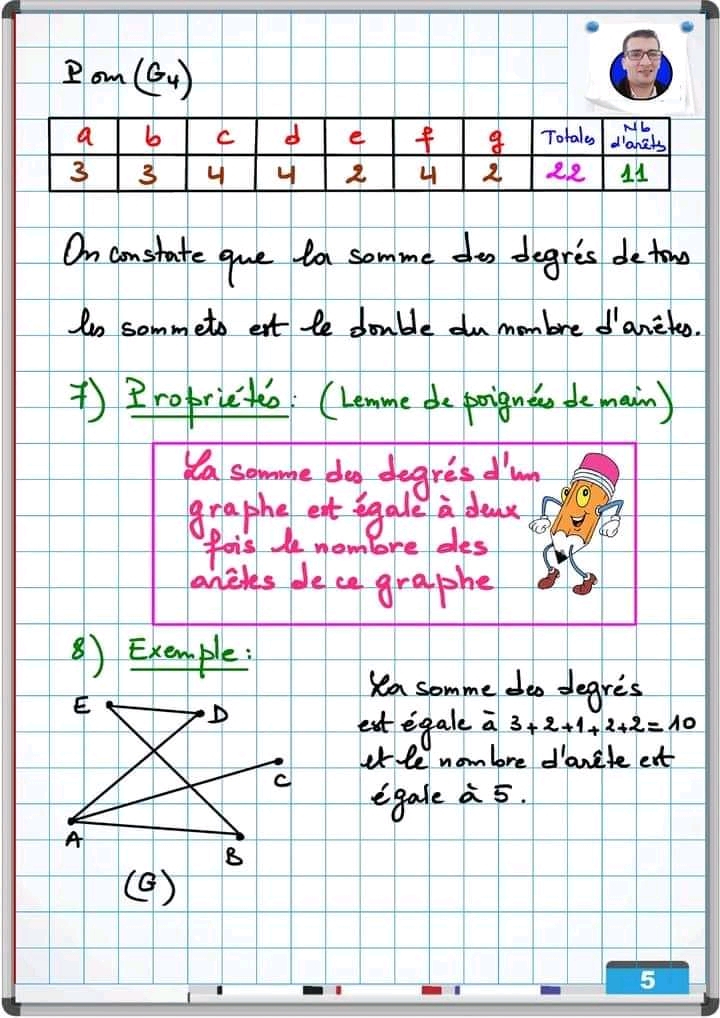 Pom (G4)
a b c d e f g Totales Nb d'arêts
3 3 4 4 2 4 2 22 11
On constate que la somme des degrés de tous
les sommets est le double du nombre d'arêtes.
7) Propriétés : (Lemme de poignées de main)
La somme des degrés d'un
graphe est égale à deux
fois le nombre des
arêtes de ce graphe
8) Exemple :
La somme des degrés
est égale à 3+2+1+2+2=10
et le nombre d'arête est
égale à 5.
E
D
C
A
B
(G)
5